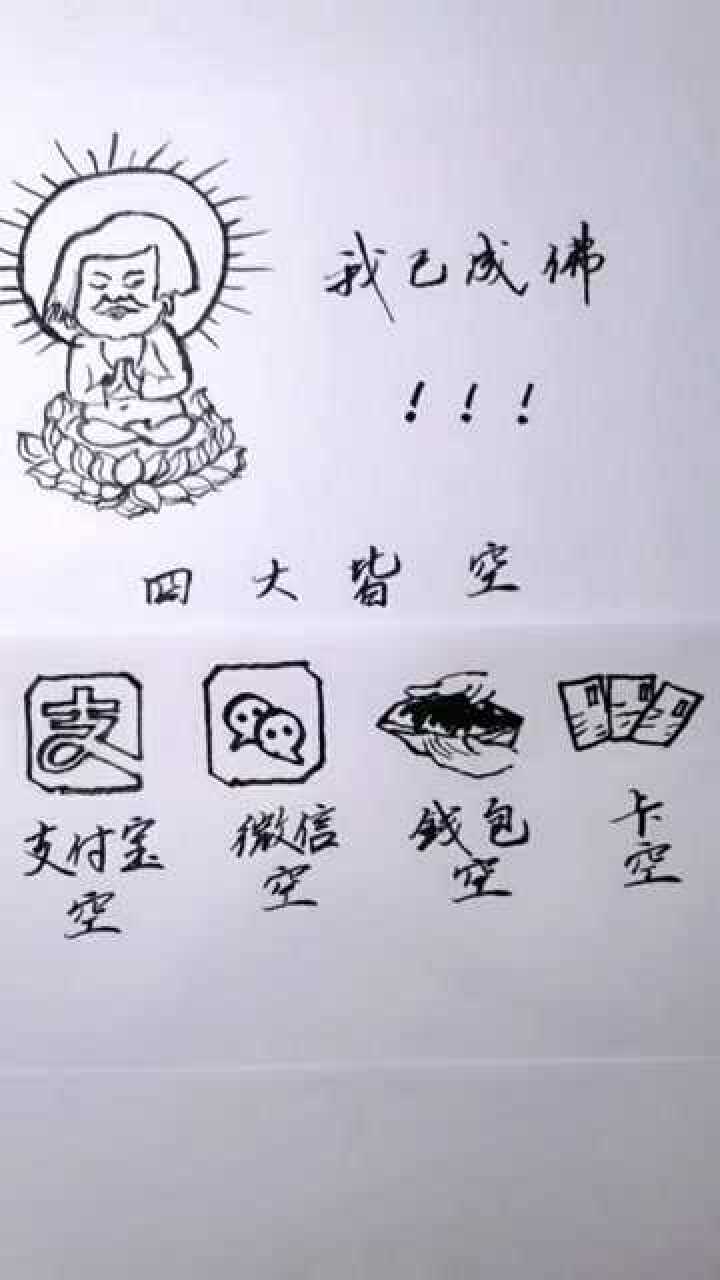 我已成佛
!!!
四大皆空
支
支付宝 微信 钱包 卡
空 空 空 空